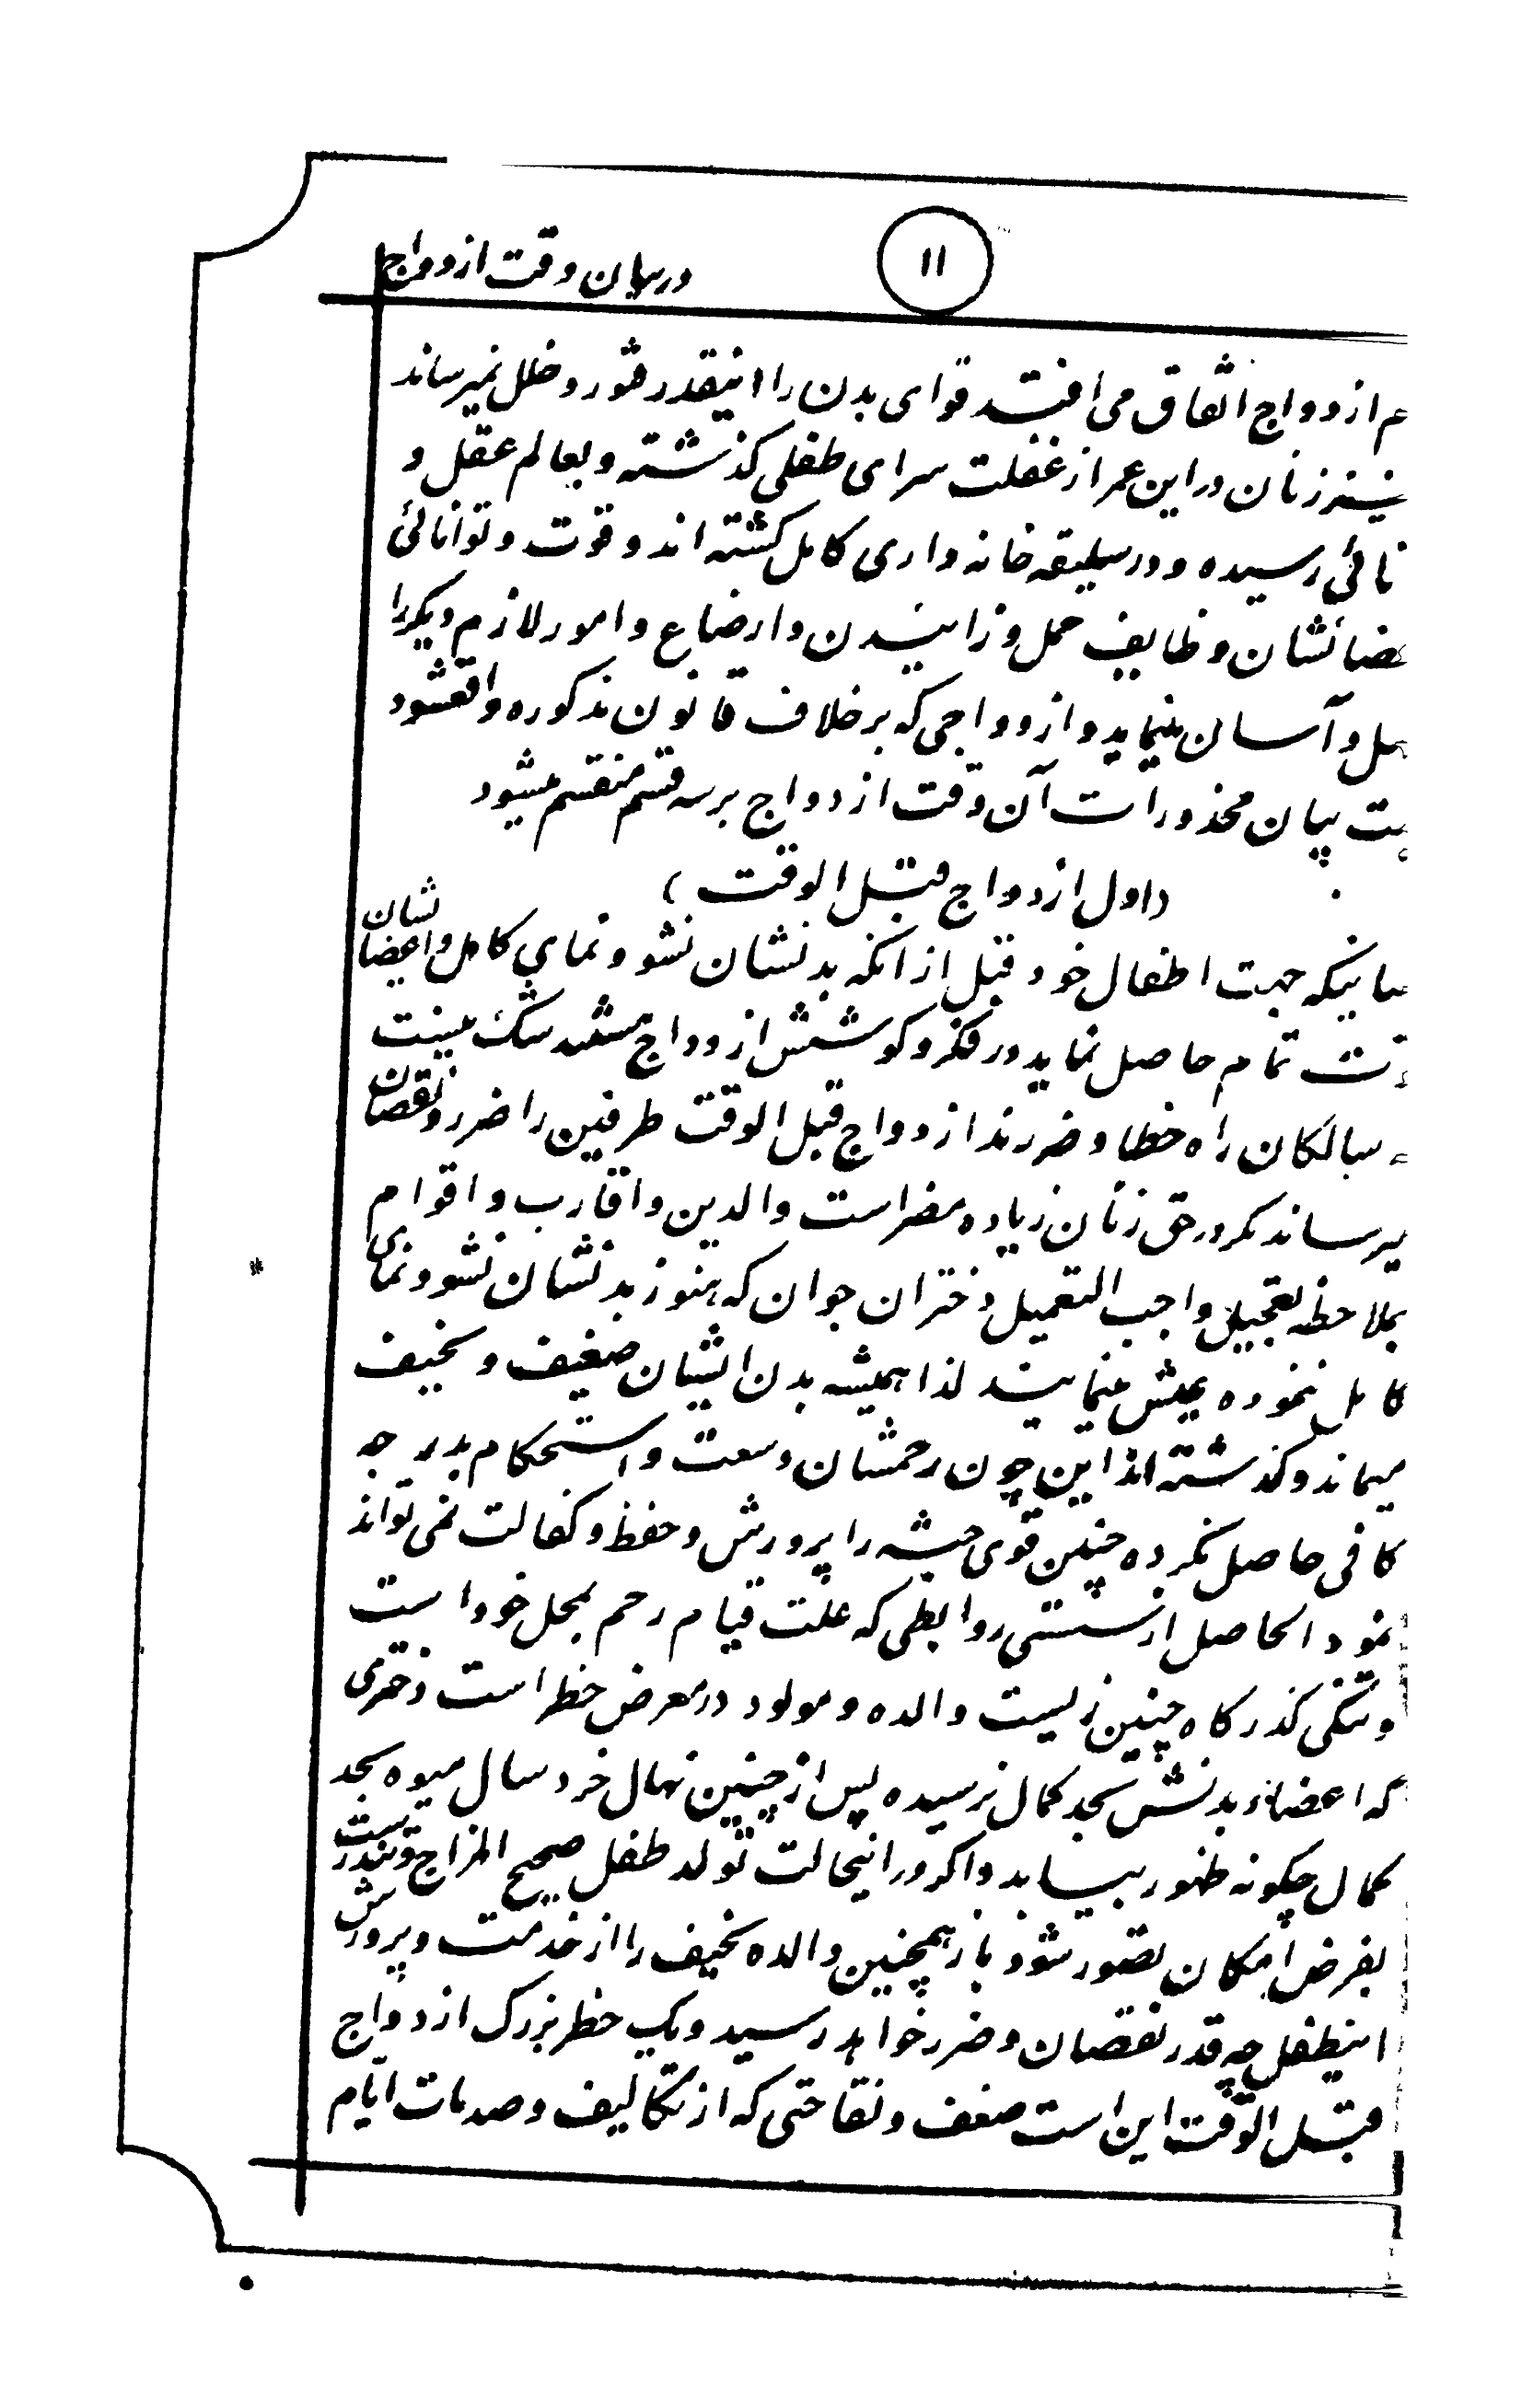 ۱۱
در بیان وقت ازدواج
م ازدواج اتفاق می افتد قوای بدن را اینقدر فتور و خلل نمیرساند
نیز زنان در این عمر از غفلت سرای طفلی گذشته و بعالم عقل و
نائی رسیده و در سلیقه خانه داری کامل گشته اند و قوت و توانائی
عضائشان وظایف حمل و زائیدن و ارضاع و امور لازم دیگر را
هل و آسان مینماید و ازدواجی که برخلاف قانون مذکوره واقعشود
بیان محذورات آن وقت ازدواج برسه قسم منقسم میشود
(اول ازدواج قبل الوقت)
سانیکه جهت اطفال خود قبل از آنکه بدنشان نشو و نمای کامل و اعضاشان
تمام حاصل نماید در فکر و کوشش ازدواج شک نیست
سالکان راه خطا و ضررند ازدواج قبل الوقت طرفین را ضرر و نقصان
میرساند مگر در حق زنان زیاده مضر است والدین و اقارب و اقوام
بملاحظه تعجیل واجب التعمیل دختران جوان که هنوز بدنشان نشو و نمای
کامل ننموده پیش مینمایند لذا همیشه بدن ایشان ضعیف و نحیف
میماند و گذشته از این چون رحمشان وسعت و استحکام بدرجه
کافی حاصل نکرده جنین قوی جثه را پرورش و حفظ و کفالت نمی تواند
نمود الحاصل از سستی روابطی که علت قیام رحم بمحل خود است
و تنگی گذرگاه جنین زیست والده و مولود در معرض خطر است دختری
که اعضاء بدنش بحد کمال نرسیده پس از چنین نهال خرد سال میوه بحد
کمال چگونه ظهور بیابد و اگر در اینحالت تولد طفل صحیح المزاج و تندرست
بفرض امکان تصور شود باز همچنین والده نحیف را از خدمت و پرورش
اینطفل چه قدر نقصان و ضرر خواهد رسید و یک خطر بزرگ ازدواج
قبل الوقت این است ضعف و نقاهتی که از تکالیف و صدمات ایام